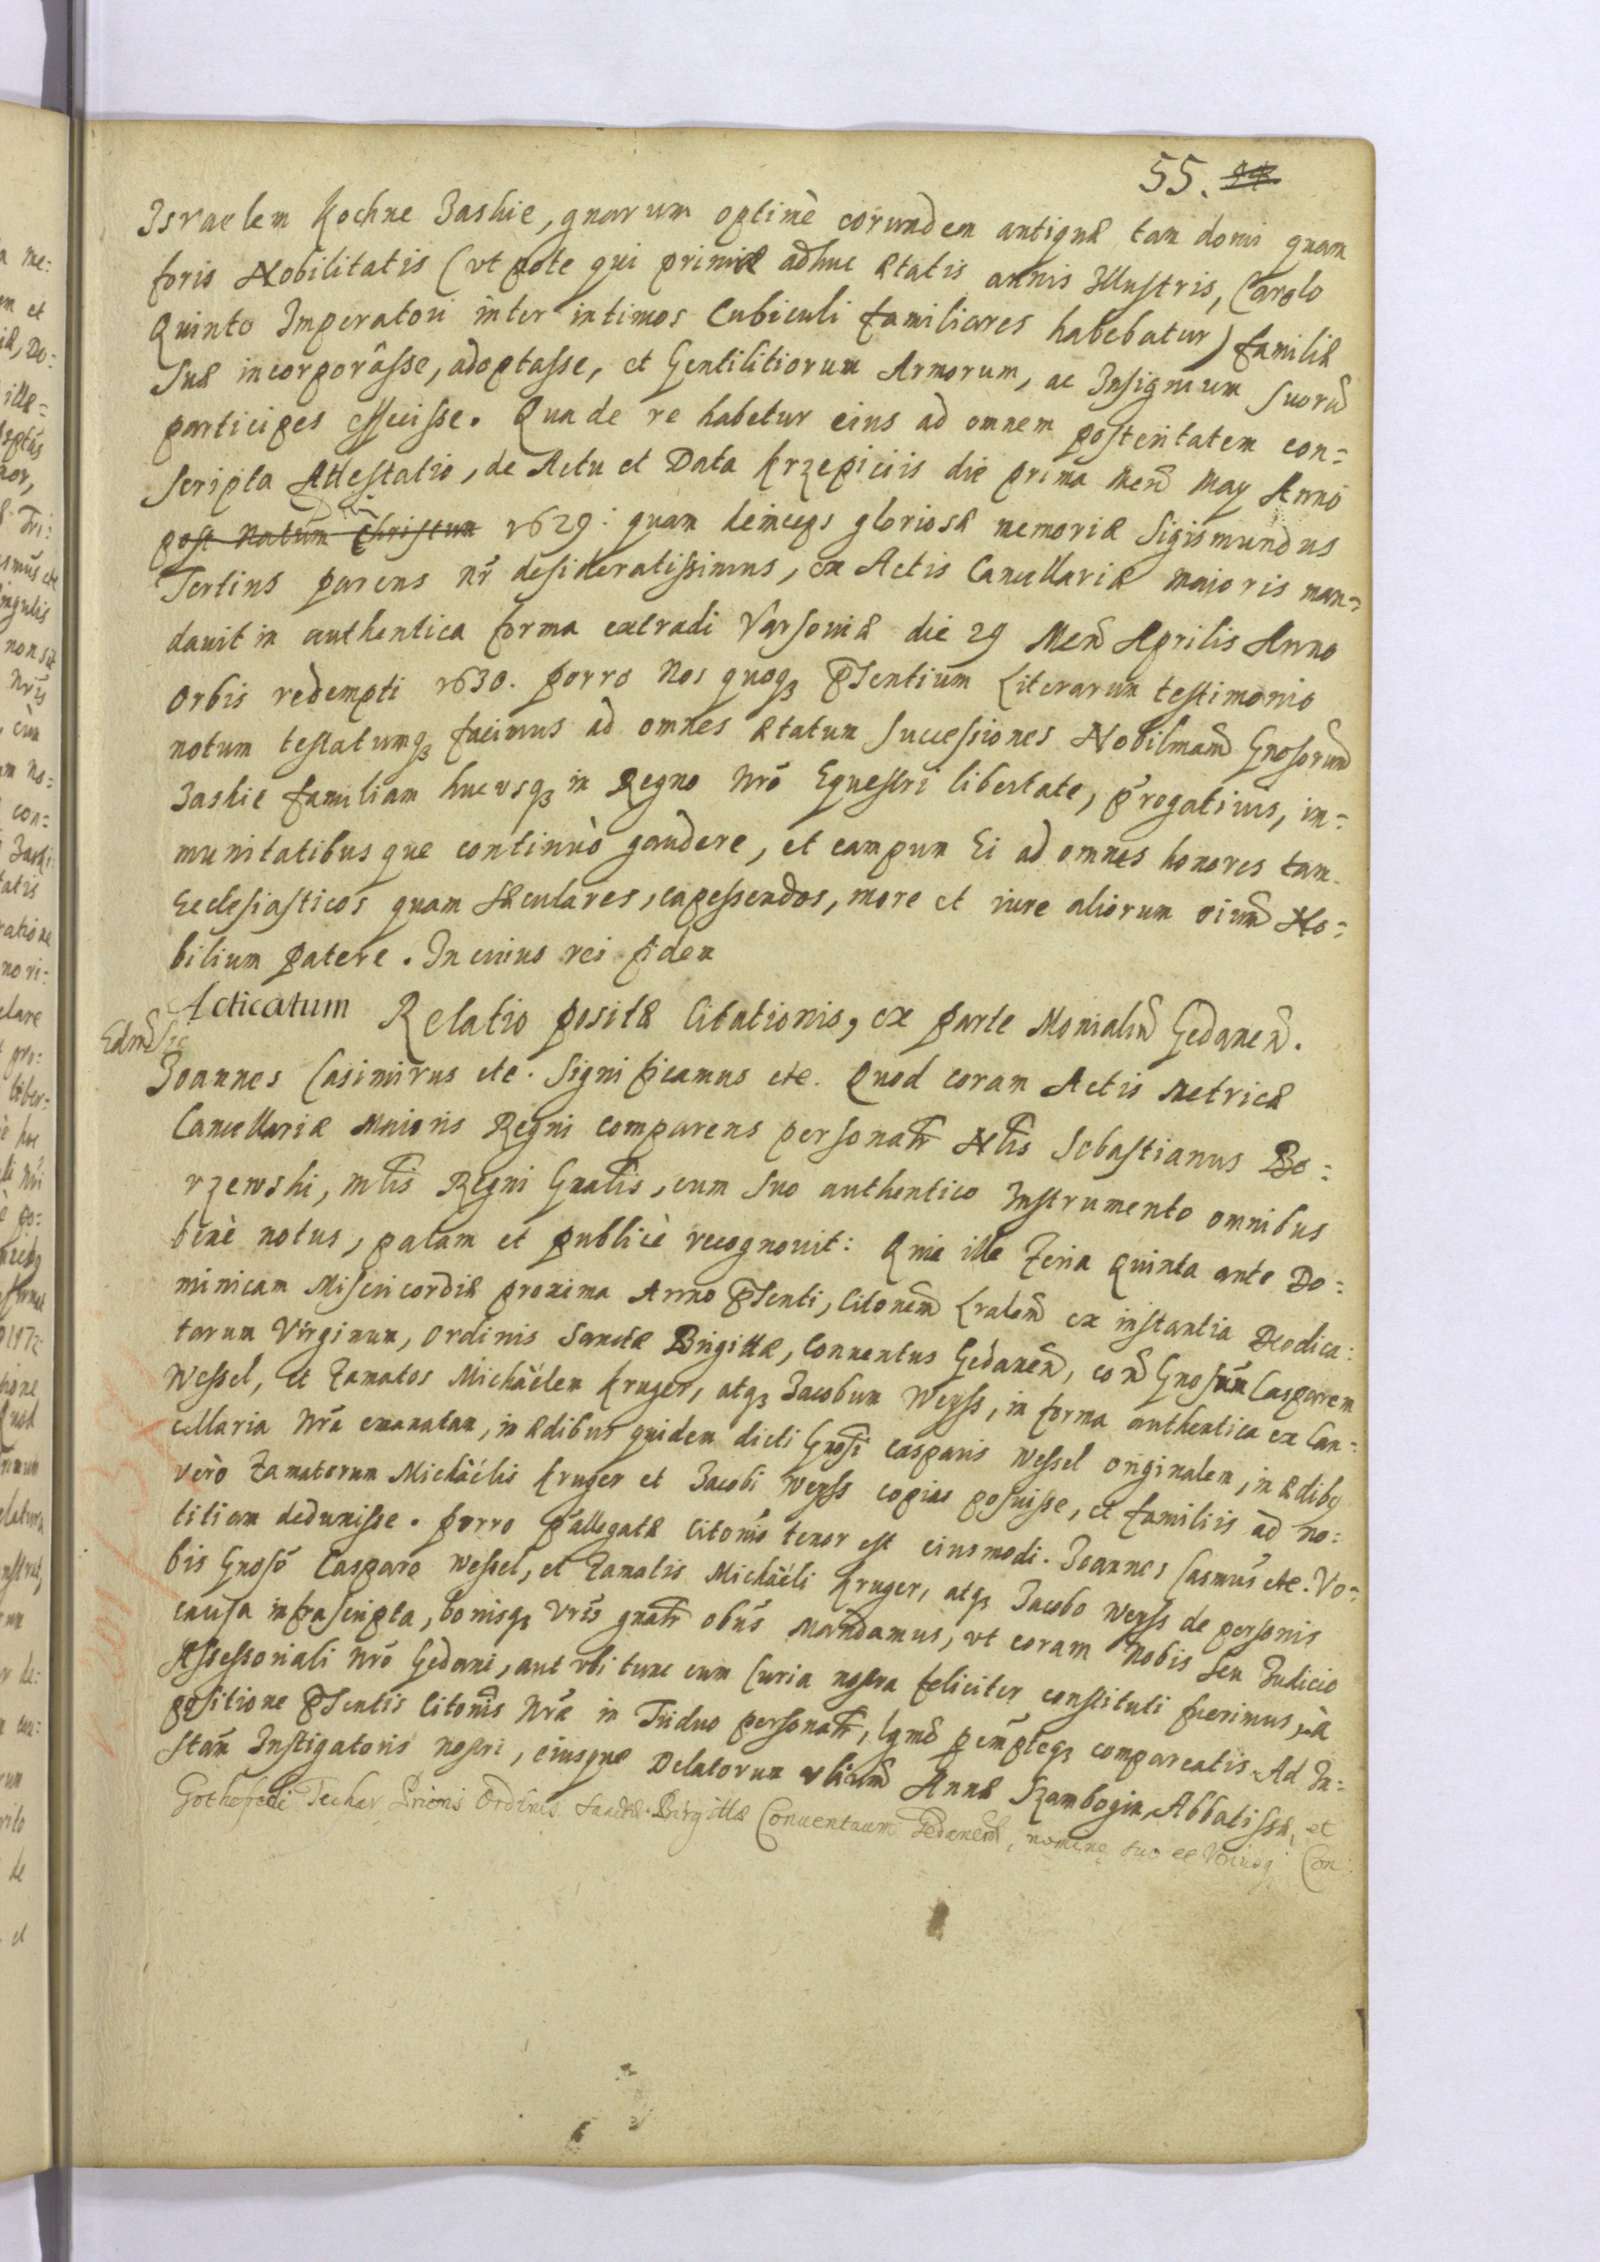 55. 54
Israelem Kochne Jaskie, gnarum optimè eorundem antiquæ tam domi quam
foris Nobilitatis (ut pote qui primæ adhuc ætatis annis Illustris, Carolo
Quinto Imperatori inter intimos Cubiculi familiares habebatur) familiæ
suæ incorporâsse, adoptasse, et Gentilitiorum Armorum, ac Insignium suorũ
participes effecisse. Qua de re habetur eius ad omnem posteritatem con=
scripta Attestatio, de Actu et Data Krzepiciis die prima Menš May Anno
post natum Christum Dñi 1629: quam deinceps gloriosæ memoriæ Sigismundus
Tertius parens nr̃ desideratissimus, ex Actis Cancellariæ maioris man=
dauit in authentica forma extradi Varsouiæ die 29 Menš Aprilis Anno
orbis redempti 1630. porro Nos quoqȝ p̃sentium Literarum testimonio
notum testatumqȝ facimus ad omnes ætatum successiones Nobilem Gnosorum
Jaskie familiam hucusqȝ in Regno Nrõ Equestri libertate, p̃rogatiuis, im=
munitatibusque continuò gaudere, et campum Ei ad omnes honores tam
Ecclesiasticos quam sæculares, capessendos, more et iure aliorum oium No=
bilium patere. In cuius rei fidem
Acticatum Relatio positæ Citationis, ex parte Monialiũ Gedaneñ.
Joannes Casimirus etc. Significamus etc. Quod coram Actis Metricæ
Cancellariæ Maioris Regni comparens personalr̃ Nlis Sebastianus Bo=
rzewski, mlis Regni Gnalis, cum suo authentico Instrumento omnibus
benè notus, palam et publicè recognouit: Quia ille Feria Quinta ante Do=
minicam Misericordiæ proxima Anno p̃senti, Citonem Lralem ex instantia Dedica=
tarum Virginum, Ordinis Sanctæ Brigittæ, Conuentus Gedaneñ, con Gnosum Casparem
Wessel, et Famatos Michäelem Kruger, atqȝ Jacobum Weyss, in forma authentica ex Can=
cellaria Nrã emanatam, in ædibus quidem dicti Gnosi Casparis Wessel originalem, in ædibȝ
vèro Famatorum Michäélis Kruger et Jacobi Weyss copias posuisse, et familiis ad no=
titiam deduxisse. porro p̃allegatæ Citonis tenor est eiusmodi. Joannes Casmus etc. Vo=
bis Gnosõ Casparo Wessel, et Famatis Michäéli Kruger, atqȝ Jacobo Weyss de personis
causa infrascripta, bonisqȝ Vris gnalr̃ obus mandamus, ut coram Nobis seu Iudicio
Assessoriali Nrõ Gedani, aut ubi tunc cum Curia nostra feliciter constituti fuerimus, à
positione p̃sentis Citonis Nræ in Triduo personalr̃, lgmè pemptoqȝ compareatis. Ad In=
stam Instigatoris nostri, eiusque Delatorum Anna Szambogia, Abbatissa, et
Gothofredi Techar Prioris Ordinis Sanctæ Birgittæ Conuentuum Gedaneñ, nomine suo et Con: